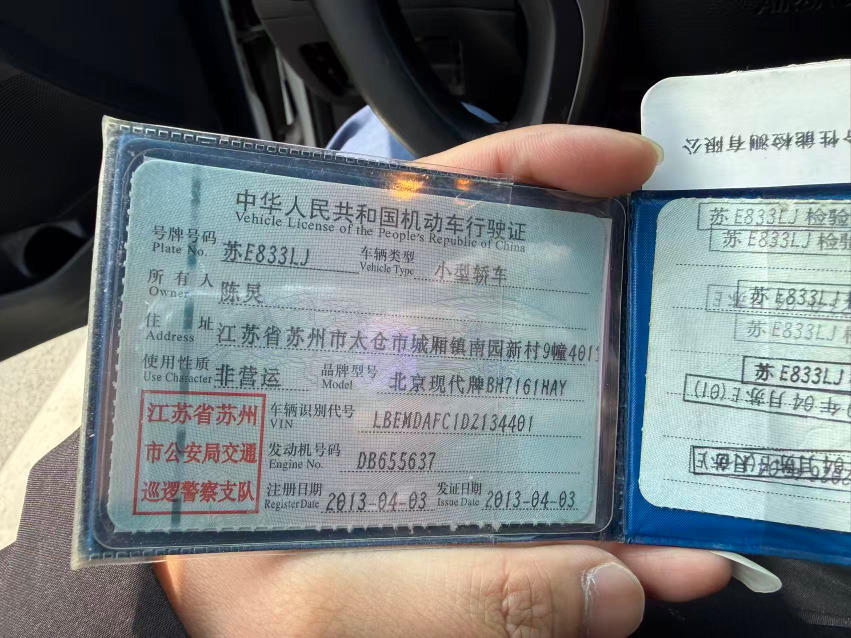 中华人民共和国机动车行驶证
Vehicle License of the People's Republic of China
号牌号码 苏E833LJ 车辆类型 小型轿车
Plate No. Vehicle Type
所有人 陈炅
Owner
住址 江苏省苏州市太仓市城厢镇南园新村9幢401
Address
使用性质 非营运 品牌型号 北京现代牌BH7161HAY
Use Character Model
江苏省苏州
市公安局交通
巡逻警察支队
车辆识别代号 LBEMDAFC1DZ134401
VIN
发动机号码 DB655637
Engine No.
注册日期 2013-04-03 发证日期 2013-04-03
Register Date Issue Date
性能检测有限公
苏E833LJ 检验
苏E833LJ 检验
苏E833LJ
苏E833LJ
苏E833LJ